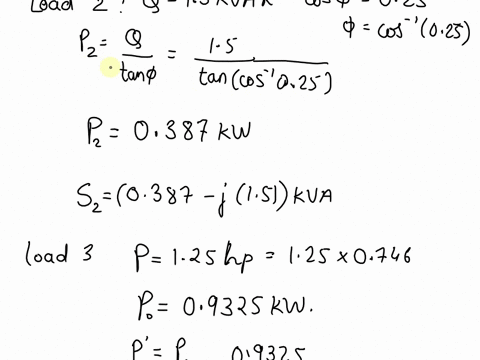 Load 2 : Q = 1.5 KVAR cosϕ = 0.25
ϕ = cos⁻¹(0.25)
P₂ = Q / tanϕ = 1.5 / tan(cos⁻¹0.25)
P₂ = 0.387 KW
S₂ = (0.387 - j (1.5)) KVA
load 3 P = 1.25 hp = 1.25 × 0.746
P₀ = 0.9325 KW.
P' = P 0.9325